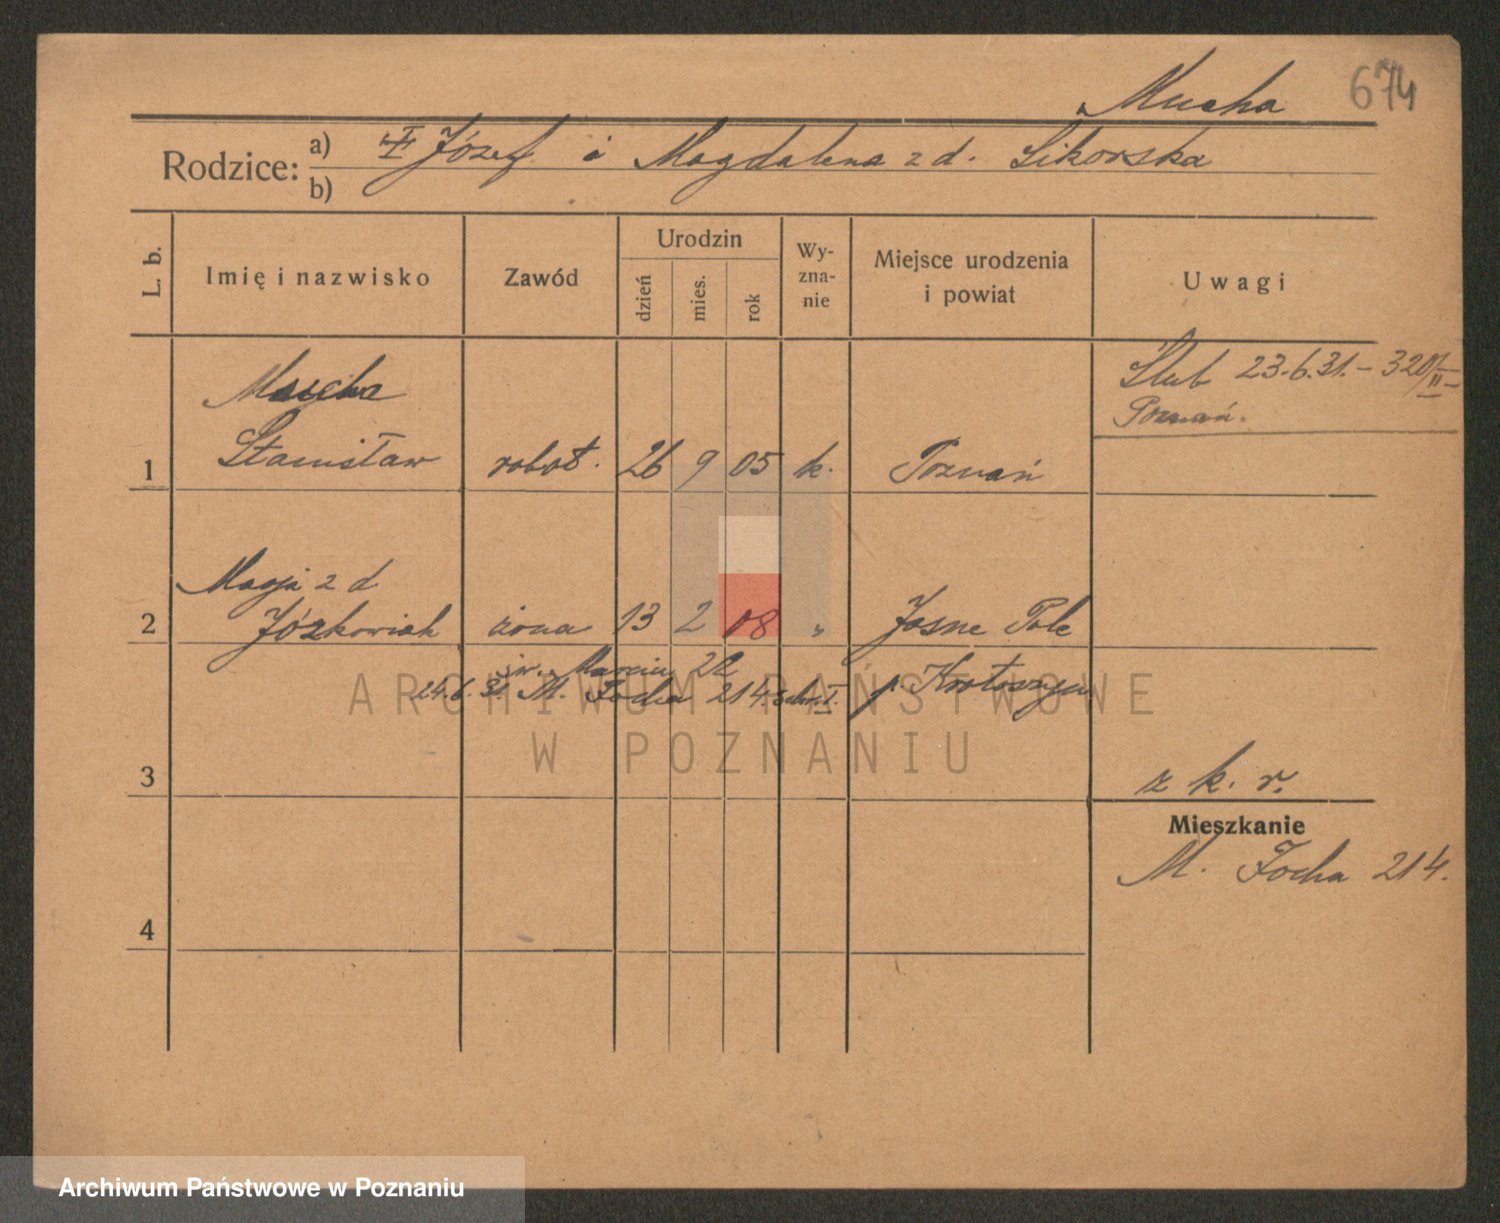 Mucha 674
Rodzice: a) Józef i Magdalena z d. Sikorska
b)
L. b.
Imię i nazwisko
Zawód
Urodzin
dzień
mies.
rok
Wy-
zna-
nie
Miejsce urodzenia
i powiat
Uwagi
Mucha
Stanisław
1
robot. 26 9 05 k. Poznań
Ślub 23.6.31. – 320/II
Poznań.
Marja z d
2 Józkowiak żona 13 2 08 „ Jasne Pole
św. Marcin 22
24.6.31. M. Focha 214. p. Krotoszyn
ARCHIWUM PAŃSTWOWE
W POZNANIU
3
z k. r.
Mieszkanie
M. Focha 214.
4
Archiwum Państwowe w Poznaniu